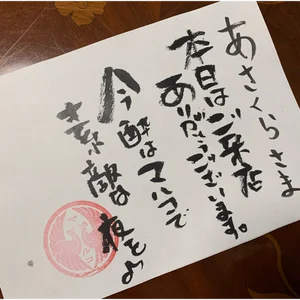 あさくらさま
本日はご来店
ありがとうございます。
今酔はマルコで
素敵な夜を